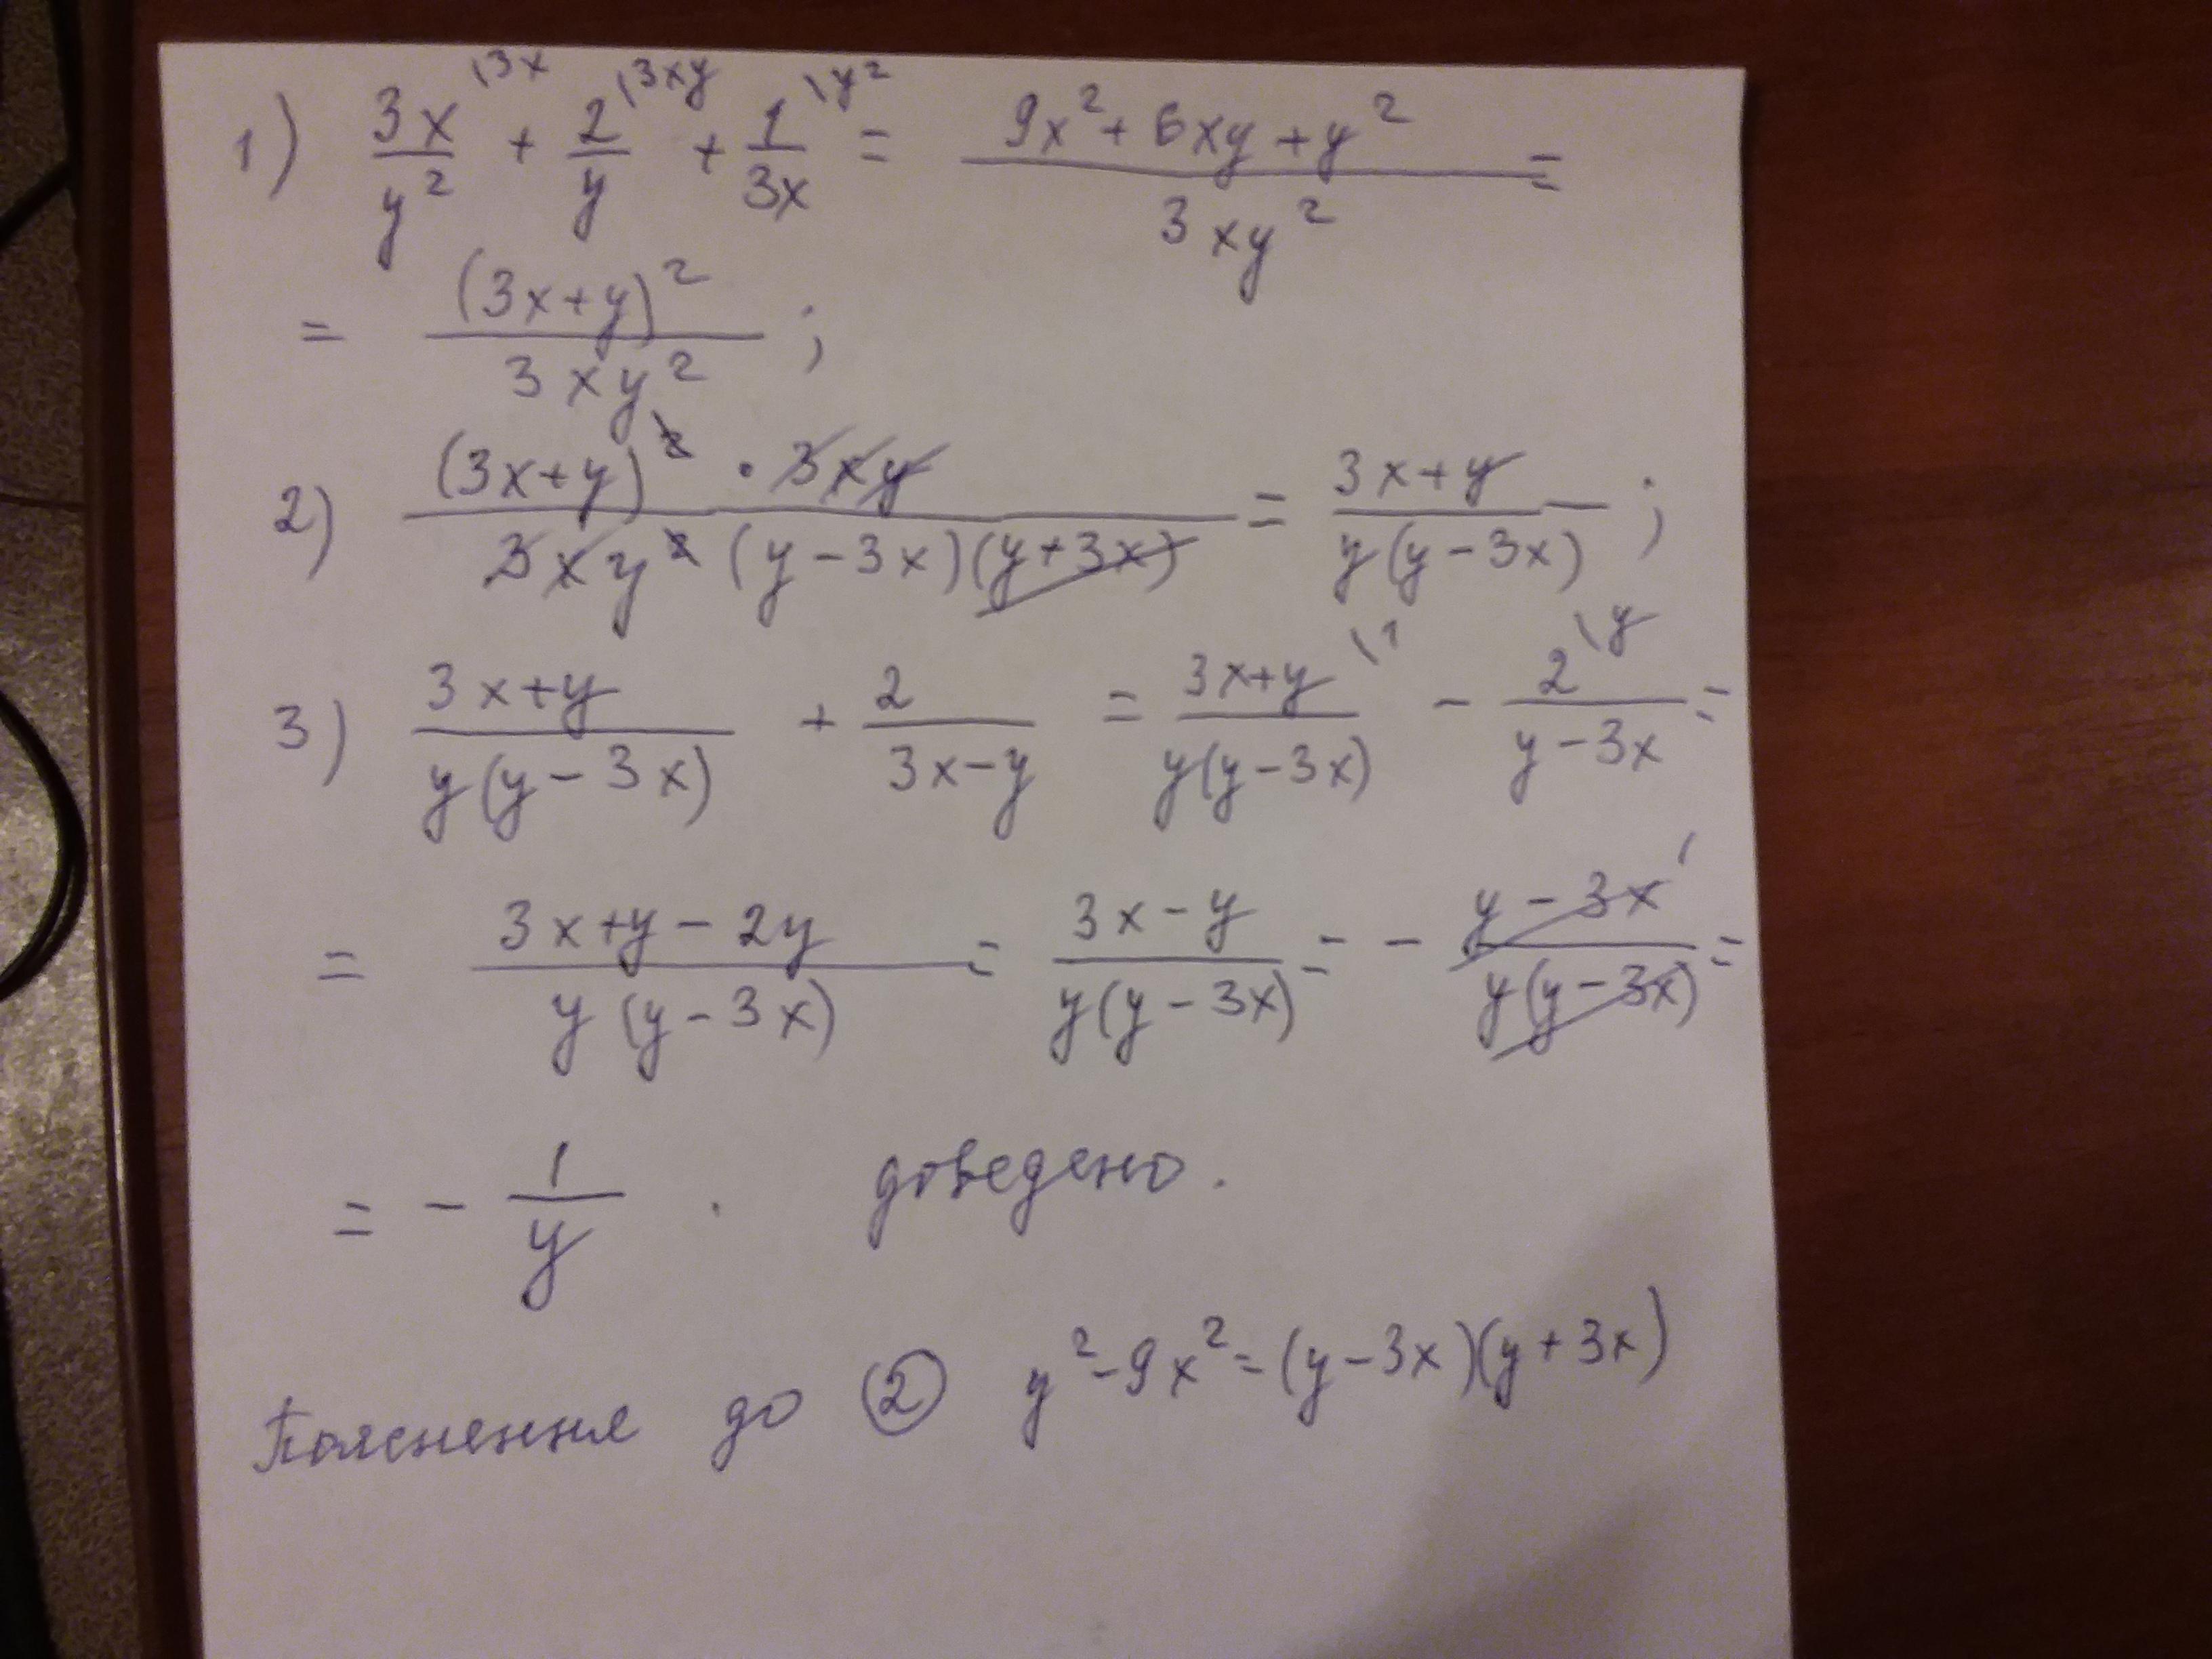 1) 3x/y² \3x + 2/y \3xy + 1/3x \y² = (9x² + 6xy + y²)/(3xy²) =
= (3x+y)²/(3xy²) ;
2) ((3x+y)² · 3xy)/(3xy² (y-3x)(y+3x)) = (3x+y)/(y(y-3x)) ;
3) (3x+y)/(y(y-3x)) + 2/(3x-y) = (3x+y)/(y(y-3x)) \1 - 2/(y-3x) \y =
= (3x+y-2y)/(y(y-3x)) = (3x-y)/(y(y-3x)) = - (y-3x)/(y(y-3x)) 1 =
= - 1/y . доведено.
Пояснення до ② y²-9x² = (y-3x)(y+3x)